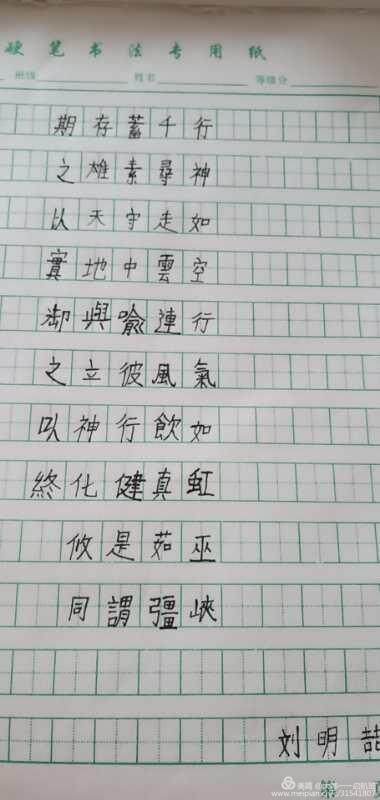 硬笔书法专用纸
姓名
行神如空行氣如虹巫峽
千尋走雲連風飲真茹彊
蓄素守中喻彼行健是謂
存雄天地與立神化攸同
期之以實御之以終
刘明喆
第
美篇